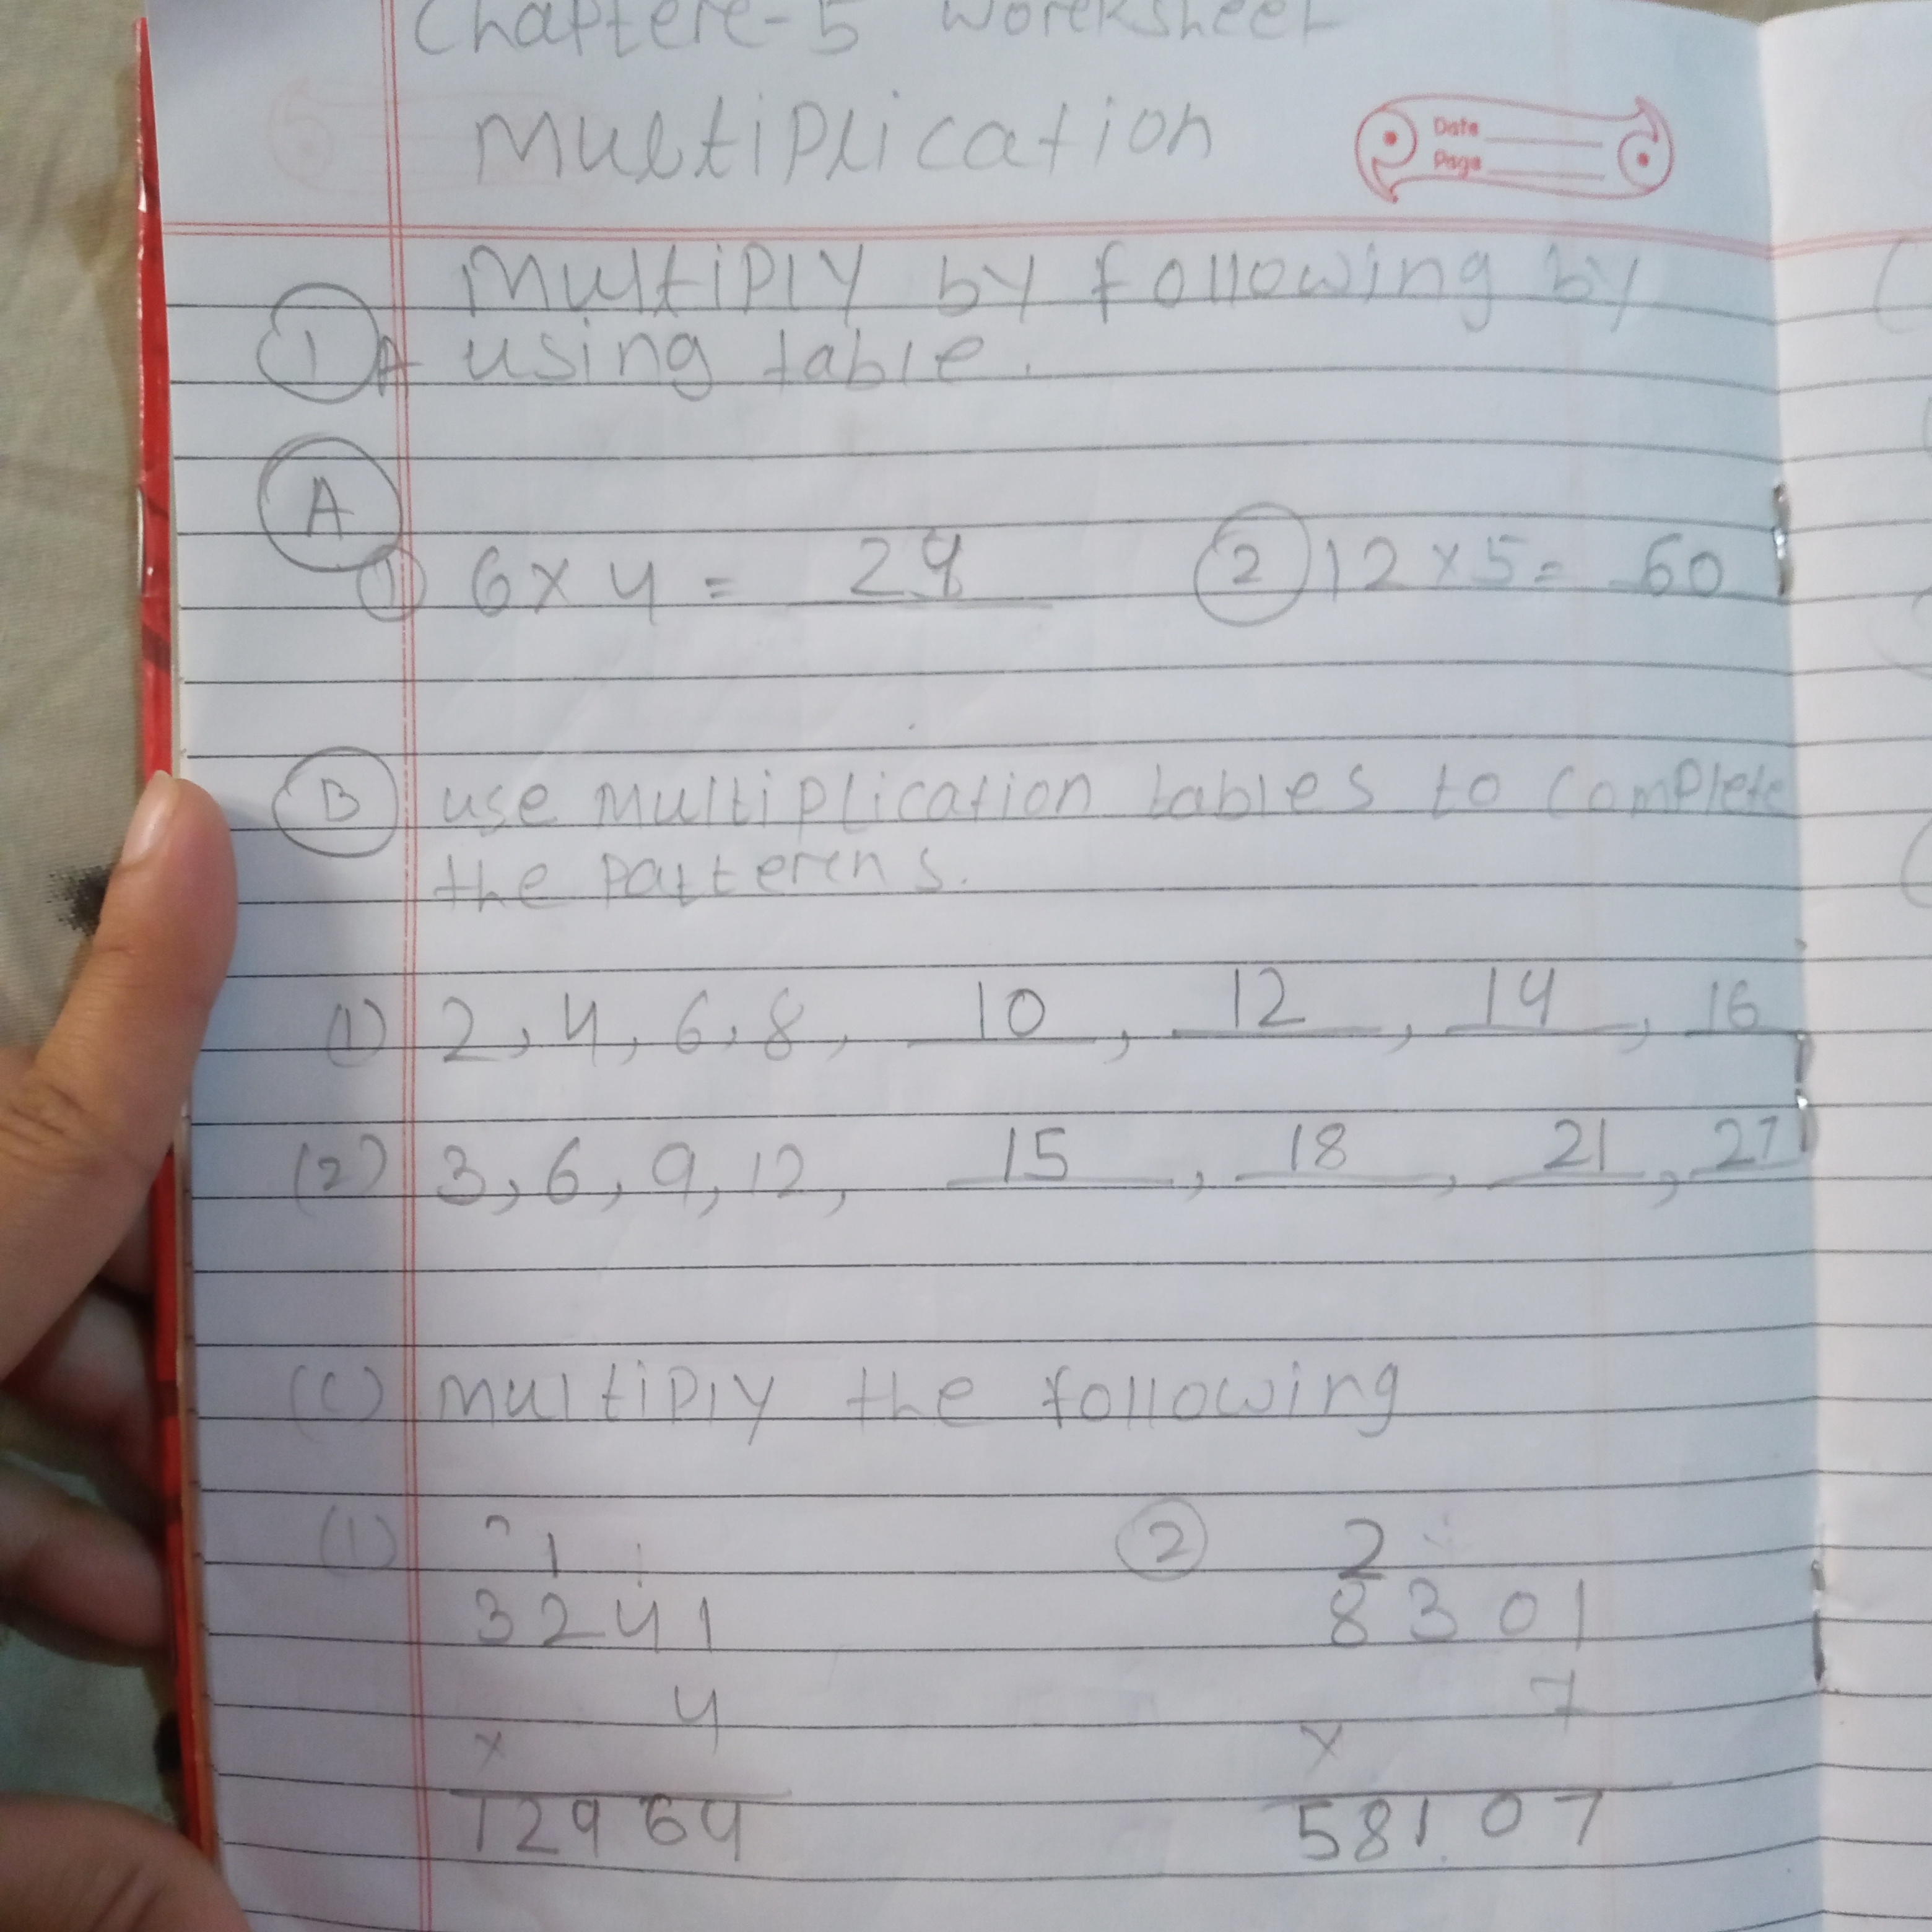 Chaptere-5 Woreksheet
Multiplication
Date
Page
Multiply by following by
1 A using table.
A
1 6 x 4 = 24 2 12 x 5 = 60
B use multiplication tables to complete
the patterens.
(1) 2, 4, 6, 8, 10, 12, 14, 16
(2) 3, 6, 9, 12, 15, 18, 21, 27
(C) multiply the following
(1) 1 2 2
3241 8301
4 7
x x
12964 58107